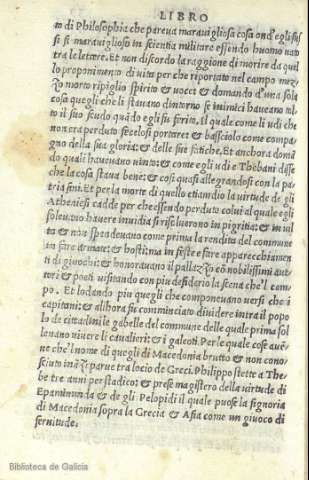 LIBRO
to di Philosophia che pareua marauigliosa cosa ond'egli fus
si si marauiglioso in scientia militare essendo huomo nato
tra le lettere. Et non discordo la raggione di morire da quil
lo proponimento di uita per che riportato nel campo mez
zo morto ripiglio spirito & uoce & domando d'una sola
cosa quegli che li stauano dintorno se inimici haueano tol
to il suo scudo quādo egli fu ferito, il quale come li udi che
non era perduto fecelosi portare & basciolo come compa
gno della sua gloria & delle sue fatiche. Et anchora domā
do quali haueuano uinto: & come egli udi e Thebani disse
che la cosa staua bene: & cosi quasi allegrandosi con la pa
tria fini. Et per la morte di quello etiamdio la uirtude de gli
Atheniesi cadde per che essendo perduto colui al quale egli
soleuano hauere inuidia si risoluerono in pigritia: & in ui
ta & non spandeuano come prima la rendita del commune
in fare armate: & hosti: ma in feste e fare apparecchiamen
ti di giuochi: & honorauano il pallazzo cō nobilissimi aut
tori & poeti uisitando con piu desidario la scena che'l cam
po. Et lodando piu quegli che componeuano uersi che i
capitani: & alhora fu comminciato diuidere intra il popo
lo de cittadini le gabelle del commune delle quale prima sol
leuano uiuere li caualieri: & i galeoti. Per le quale cose auē
ne che'l nome di quegli di Macedonia brutto & non cono
sciuto ināzi parue tra locio de Greci. Philippo stette a The
be tre anni per stadico: & prese magistero della uirtude di
Epaminunda & de gli Pelopidi il quale puose la signoria
di Macedonia sopra la Grecia & Asia come un giuoco di
seruitude.
Biblioteca de Galicia